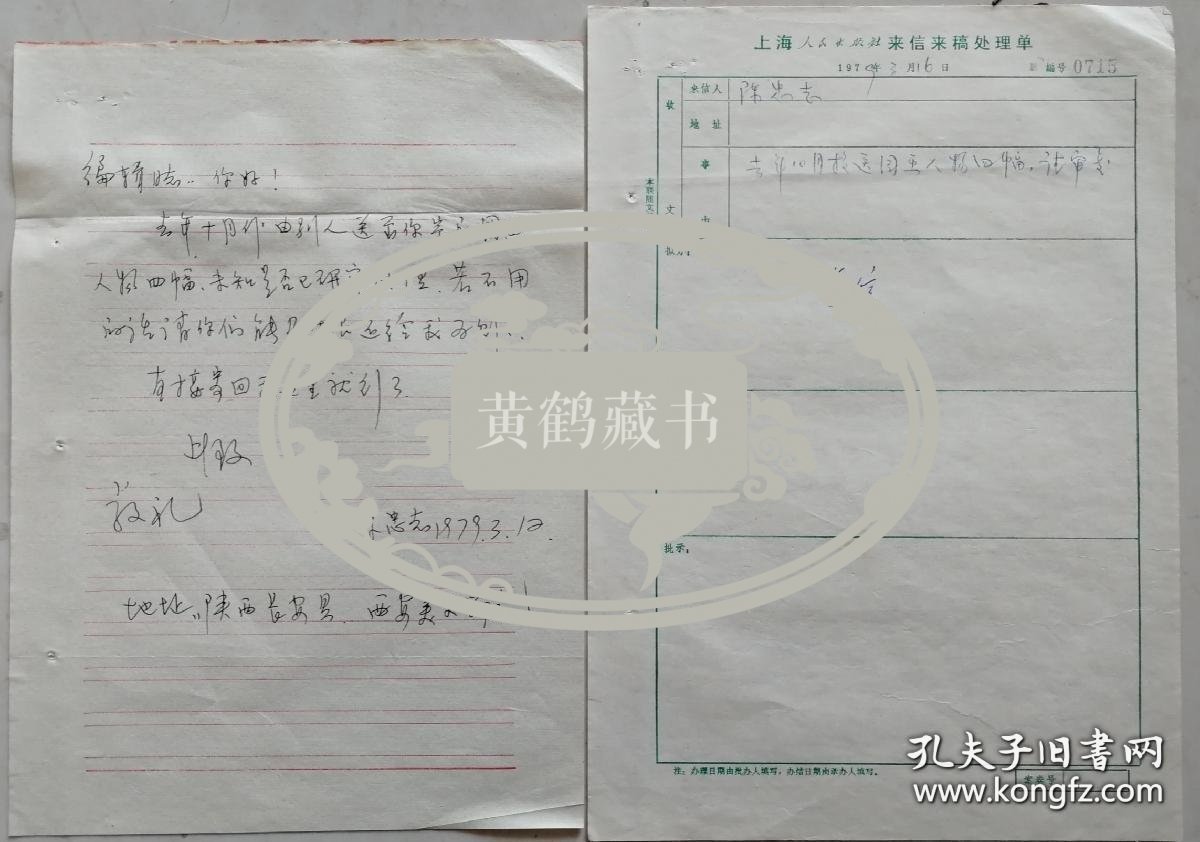 编辑同志：你好！
去年十月份由别人送至你
人物四幅、未知是否已研究 若不用
的话请你们能 给我
直接寄回 就行了
上致
敬礼
忠志1979.3.12.
地址：陕西长安县、西安美
上海人民出版社来信来稿处理单
1979年3月16日
编号 0715
收
来信人
陈忠志
地址
事
去年10月投送国画人物四幅。请审查
文
由
批示：
注：办理日期由批办人填写，办结日期由承办人填写。
档案号
黄鹤藏书
孔夫子旧书网
www.kongfz.com